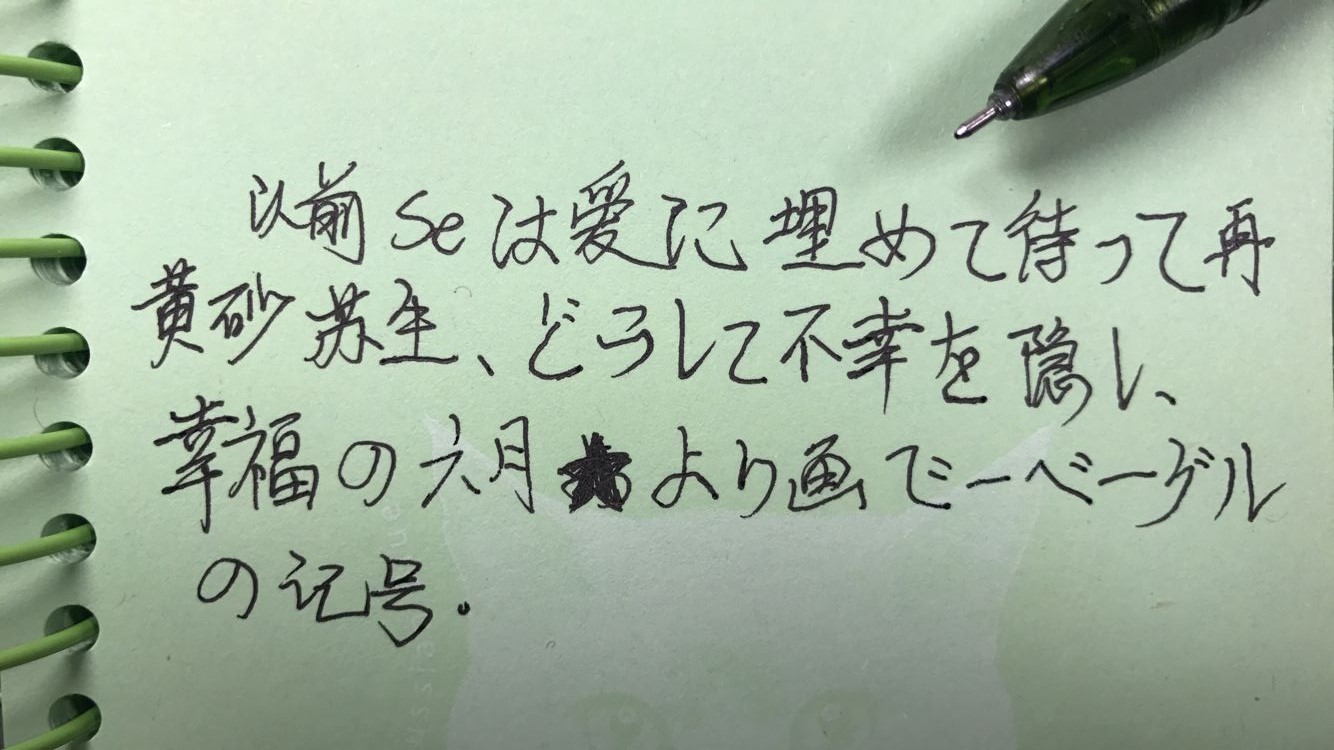 以前 Se は愛に埋めて待って再
黄砂苏生、どうして不幸を隠し、
幸福の六月より画でーベーグル
の记号.